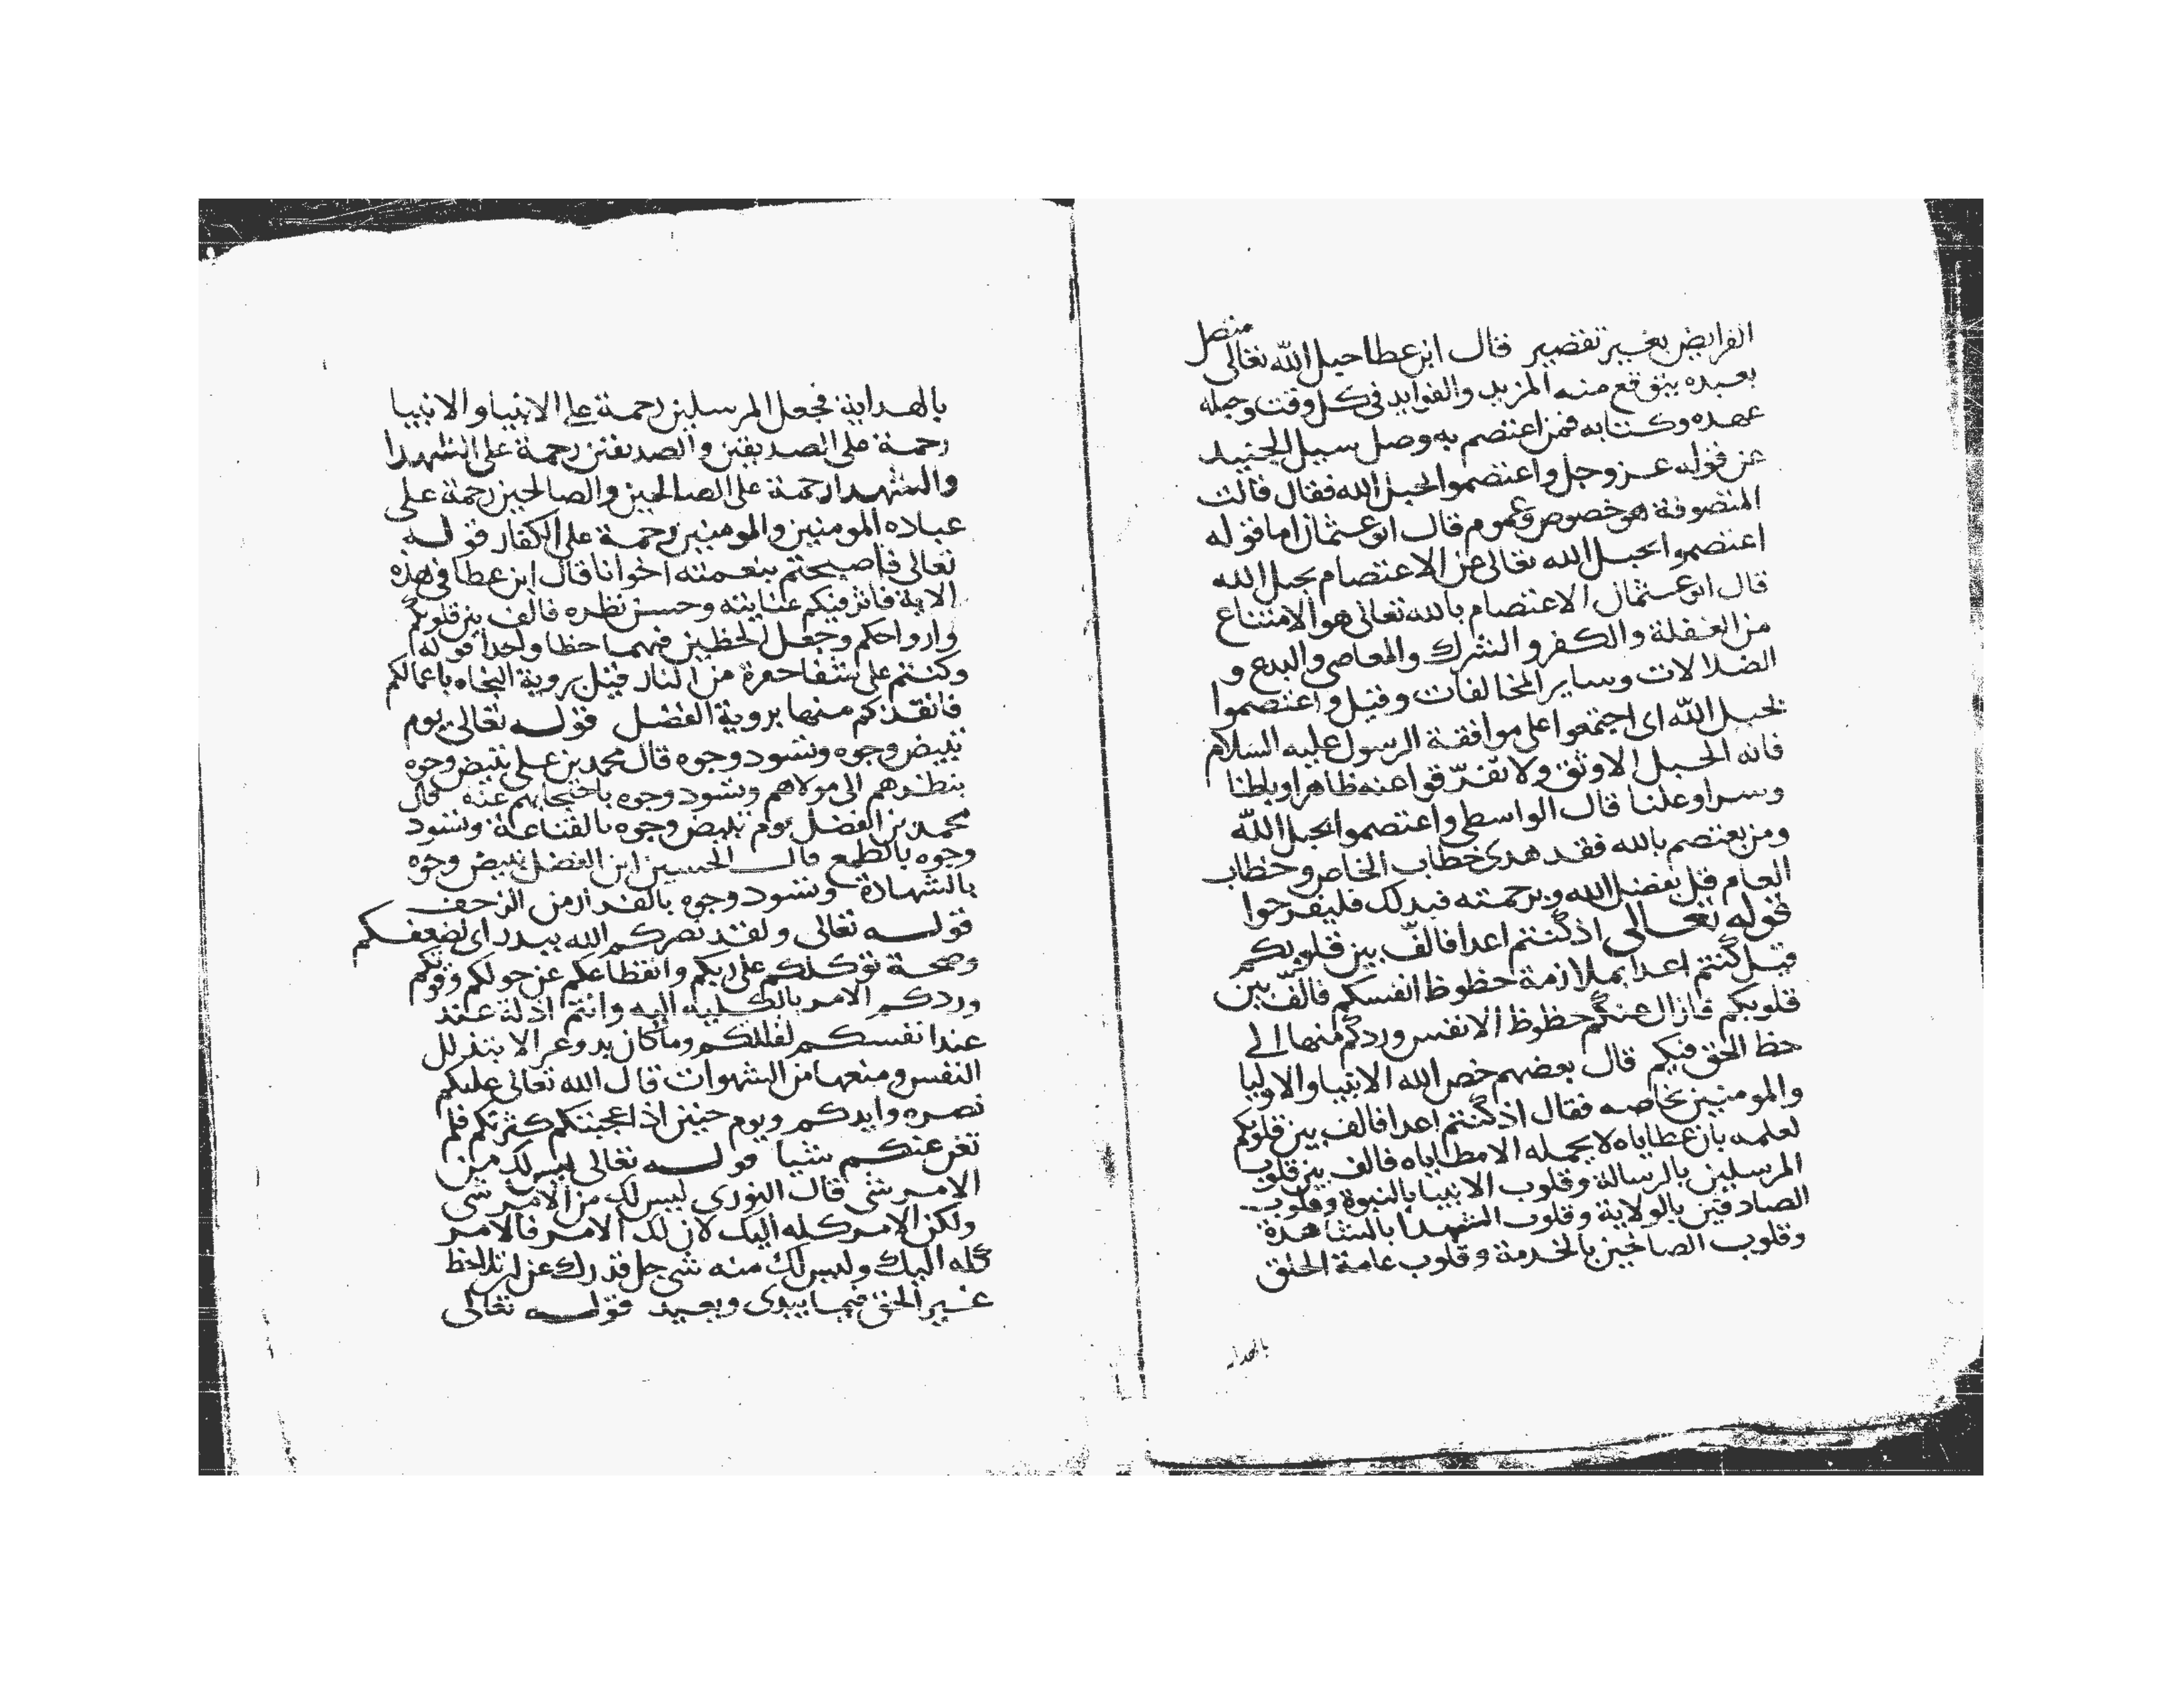 الفرايض بغير تقصير قال ابن عطا حبل الله تعالى متصل
بعبده يتوقع منه المزيد والفوايد في كل وقت وحبله
عهده وكتابه فمن اعتصم به وصل سيل الجنيد
عن قوله عز وجل واعتصموا بحبل الله فقال قالت
المتصوفة هو خصوص وعموم قال ابو عثمان اما قوله
اعتصموا بحبل الله تعالى عن الاعتصام بحبل الله
قال ابو عثمان الاعتصام بالله تعالى هو الامتناع
من الغفلة والكفر والشرك والمعاصي والبدع و
الضلالات وساير المخالفات وقيل واعتصموا
بحبل الله اي اجتمعوا على موافقة الرسول عليه السلام
فانه الحبل الاوثق ولا تفرّقوا عنه ظاهرا وباطنا
وسرا وعلنا قال الواسطي واعتصموا بحبل الله
ومن يعتصم بالله فقد هدى خطاب الخاص وخطاب
العام قل بفضل الله وبرحمته فبذلك فليفرحوا
قوله تعالى اذ كنتم اعدا فالّف بين قلوبكم
قيل كنتم اعدا بملازمة حظوظ انفسكم فالّف بين
قلوبكم فازال عنكم حظوظ الانفس وردكم منها الى
حظ الحق فيكم قال بعضهم خص الله الانبيا والاوليا
والمومنين بخاصه فقال اذ كنتم اعدا فالف بين قلوبكم
لعلمه بان عطاياه لا يحمله الا مطاياه فالف بين قلوب
المرسلين بالرسالة وقلوب الانبيا بالنبوة وقلوب
الصادقين بالولاية وقلوب الشهدا بالمشاهدة
وقلوب الصالحين بالخدمة وقلوب عامة الخلق
بالهداية
بالهداية فجعل المرسلين رحمة على الانبيا والانبيا
رحمة على الصديقين والصديقين رحمة على الشهدا
والشهدا رحمة على الصالحين والصالحين رحمة على
عباده المومنين والمومنين رحمة على الكفار قوله
تعالى فاصبحتم بنعمته اخوانا قال ابن عطا في هذه
الاية فاثر فيكم عنايته وحسن نظره فالف بين قلوبكم
وارواحكم وجعل الحظين فيهما حظا واحدا قوله
وكنتم على شفا حفرة من النار قيل بروية النجاه باعمالكم
فانقذكم منها بروية الفضل قوله تعالى يوم
تبيض وجوه وتسود وجوه قال محمد بن علي تبيض وجوه
بنظرهم الى مولاهم وتسود وجوه باحتجابهم عنه قال
محمد بن الفضل يوم تبيض وجوه بالقناعة وتسود
وجوه بالطمع قال الحسين ابن الفضل تبيض وجوه
بالشهادة وتسود وجوه بالفرار من الزحف
قوله تعالى ولقد نصركم الله ببدر اي لضعفكم
وصحة توكلكم على ربكم وانقطاعكم عن حولكم وقوتكم
وردكم الامر بالكلية اليه وانتم اذلة عند
عند انفسكم لقللكم وما كان بدو عز الا بتذلل
النفس ومنعها من الشهوات قال الله تعالى عليكم
نصره وايدكم ويوم حنين اذ اعجبتكم كثرتكم فلم
تغن عنكم شيا قوله تعالى ليس لك من
الامر شي قال النوري ليس لك من الامر شي
ولكن الامر كله اليك لان لك الامر فالامر
كله اليك وليس لك منه شي جل قدرك عن ان تلاحظ
غير الحق فيما يبدى ويعيد قوله تعالى